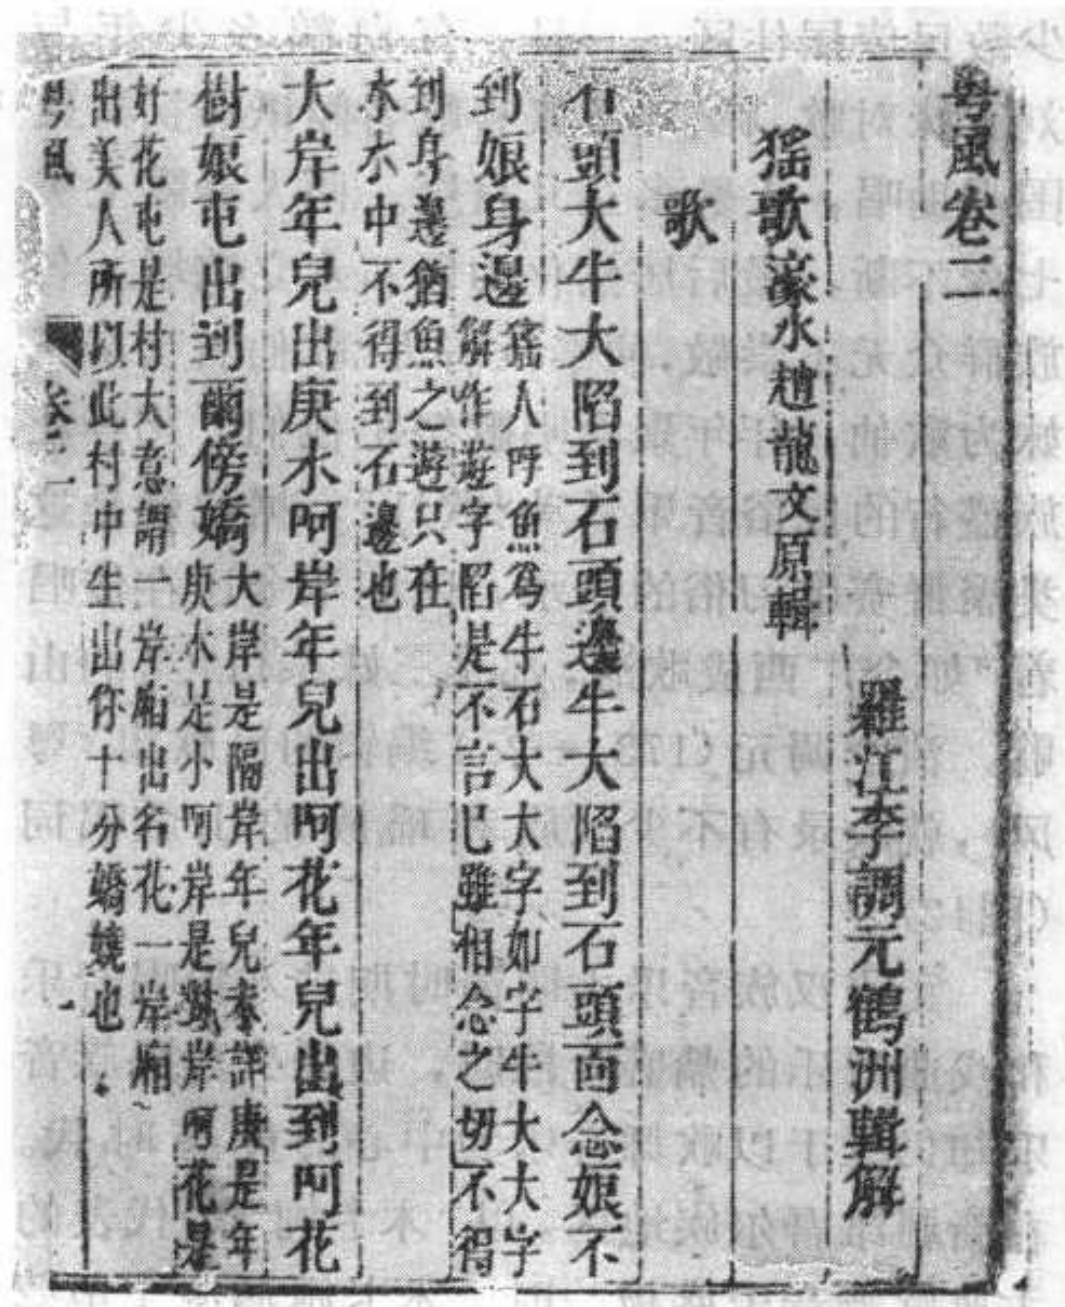 粤風卷二
羅江李調元鶴洲輯解
猺歌濠水趙龍文原輯
歌
石頭大牛大陷到石頭邊牛大陷到石頭面念娘不
到娘身邊猺人呼魚爲牛石大大字如字牛大大字
解作遊字陷是不言已雖相念之切不得
到身邊猶魚之遊只在
水中不得到石邊也
大岸年兒出庚木呵岸年兒出呵花年兒出到呵花
樹娘屯出到爾傍嬌大岸是隔岸年兒未詳庚是年
庚木是小呵岸是對岸呵花是
好花屯是村大意謂一岸廂出名花一岸廂
出美人所以此村中生出你十分嬌嬈也
粤風
卷二
一